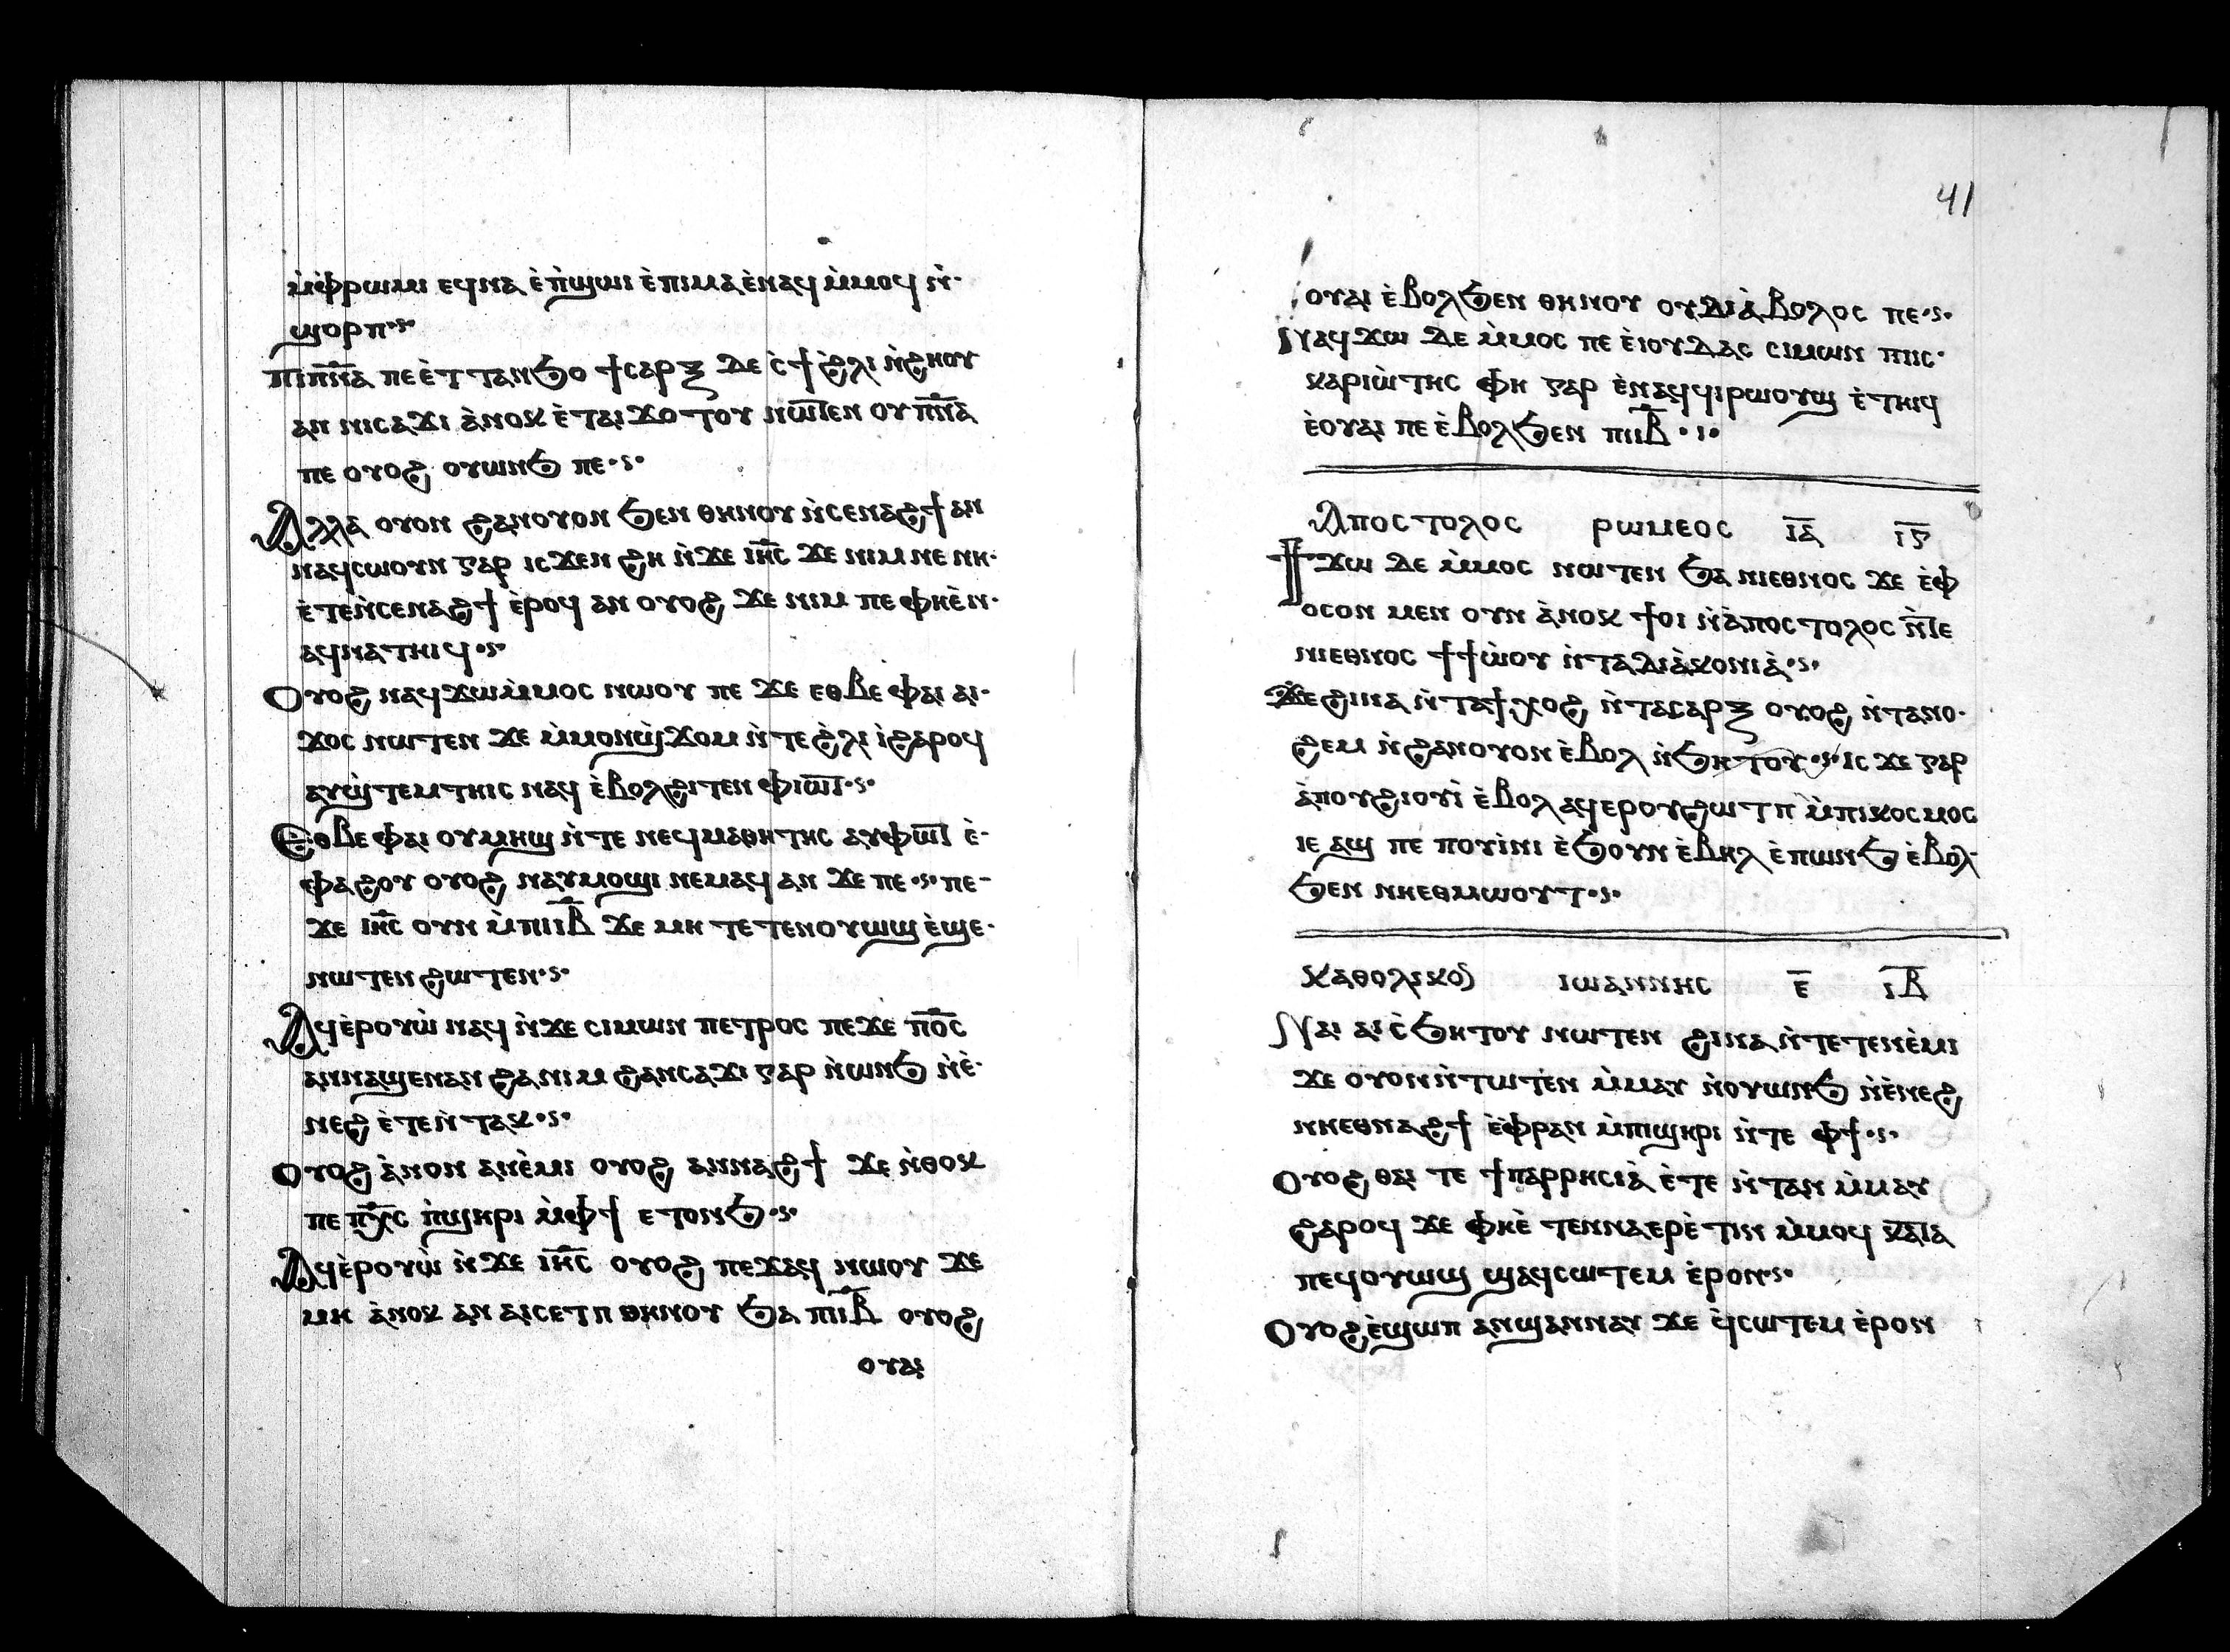 ⲙ̀ⲫ̀ⲣⲱⲙⲓ ⲉϥⲛⲁ ⲉ̀ⲡ̀ϣⲱⲓ ⲉ̀ⲡⲓⲙⲁ ⲉ̀ⲛⲁϥ ⲙ̀ⲙⲟϥ ⲛ̀·
ϣⲟⲣⲡ·ⲋ·
ⲡⲓⲡ̅ⲛ̅ⲁ̅ ⲡⲉ ⲉ̀ⲧ ⲧⲁⲛϧⲟ ϯⲥⲁⲣⲝ ⲇⲉ ⲥ̀ϯ ϩ̀ⲗⲓ ⲛ̀ϩⲏⲟⲩ
ⲁⲛ ⲛⲓⲥⲁϫⲓ ⲁ̀ⲛⲟⲕ ⲉ̀ⲧⲁⲓϫⲟⲧⲟⲩ ⲛⲱⲧⲉⲛ ⲟⲩⲡ̅ⲛ̅ⲁ̅
ⲡⲉ ⲟⲩⲟϩ ⲟⲩⲱⲛϧ ⲡⲉ·ⲋ·
Ⲁⲗⲗⲁ ⲟⲩⲟⲛ ϩⲁⲛⲟⲩⲟⲛ ϧⲉⲛ ⲑⲏⲛⲟⲩ ⲛ̀ⲥⲉⲛⲁϩϯ ⲁⲛ
ⲛⲁϥⲥⲱⲟⲩⲛ ⲅⲁⲣ ⲓⲥϫⲉⲛ ϩⲏ ⲛ̀ϫⲉ ⲓⲏ̅ⲥ̅ ϫⲉ ⲛⲓⲙ ⲛⲉ ⲛⲏ·
ⲉ̀ⲧⲉⲛ̀ⲥⲉⲛⲁϩϯ ⲉ̀ⲣⲟϥ ⲁⲛ ⲟⲩⲟϩ ϫⲉ ⲛⲓⲙ ⲡⲉ ⲫⲏⲉ̀ⲛ·
ⲁϥⲛⲁⲧⲏⲓϥ·ⲋ·
Ⲟⲩⲟϩ ⲛⲁϥϫⲱⲙ̀ⲙⲟⲥ ⲛⲱⲟⲩ ⲡⲉ ϫⲉ ⲉⲑⲃⲉ ⲫⲁⲓ ⲁⲓ·
ϫⲟⲥ ⲛⲱⲧⲉⲛ ϫⲉ ⲙ̀ⲙⲟⲛϣ̀ϫⲟⲙ ⲛ̀ⲧⲉ ϩ̀ⲗⲓ ⲓ̀ϩⲁⲣⲟϥ
ⲁⲩϣ̀ⲧⲉⲙⲧⲏⲓⲥ ⲛⲁϥ ⲉ̀ⲃⲟⲗϩⲓⲧⲉⲛ ⲫⲓⲱⲧ·ⲋ·
Ⲉⲑⲃⲉ ⲫⲁⲓ ⲟⲩⲙⲏϣ ⲛ̀ⲧⲉ ⲛⲉϥⲙⲁⲑⲏⲧⲏⲥ ⲁⲩⲫⲱⲧ ⲉ̀-
ⲫⲁϩⲟⲩ ⲟⲩⲟϩ ⲛⲁⲩⲙⲟϣⲓ ⲛⲉⲙⲁϥ ⲁⲛ ϫⲉ ⲡⲉ·ⲋ· ⲡⲉ-
ϫⲉ ⲓⲏ̅ⲥ̅ ⲟⲩⲛ ⲙ̀ⲡⲓⲓ̅ⲃ̅ ϫⲉ ⲙⲏ ⲧⲉⲧⲉⲛⲟⲩⲱϣ ⲉ̀ϣⲉ·
ⲛⲱⲧⲉⲛ ϩⲱⲧⲉⲛ·ⲋ·
Ⲁϥⲉ̀ⲣⲟⲩⲱ̀ ⲛⲁϥ ⲛ̀ϫⲉ ⲥⲓⲙⲱⲛ ⲡⲉⲧⲣⲟⲥ ⲡⲉϫⲉ ⲡ̅ⲟ̅ⲥ̅
ⲁⲛⲛⲁϣⲉⲛⲁⲛ ϩⲁ ⲛⲓⲙ ϩⲁⲛⲥⲁϫⲓ ⲅⲁⲣ ⲛ̀ⲱⲛϧ ⲛ̀ⲉ̀·
ⲛⲉϩ ⲉ̀ⲧⲉⲛ̀ⲧⲁⲕ·ⲋ·
Ⲟⲩⲟϩ ⲁ̀ⲛⲟⲛ ⲁⲛⲉ̀ⲙⲓ ⲟⲩⲟϩ ⲁⲛⲛⲁϩϯ ϫⲉ ⲛ̀ⲑⲟⲕ
ⲡⲉ ⲡ̅ⲭ̅ⲥ̅ ⲡ̀ϣⲏⲣⲓ ⲙ̀ⲫϯ ⲉⲧⲟⲛϧ·ⲋ·
Ⲁϥⲉ̀ⲣⲟⲩⲱ̀ ⲛ̀ϫⲉ ⲓⲏ̅ⲥ̅ ⲟⲩⲟϩ ⲡⲉϫⲁϥ ⲛⲱⲟⲩ ϫⲉ
ⲙⲏ ⲁ̀ⲛⲟⲕ ⲁⲛ ⲁⲓⲥⲉⲧⲡ ⲑⲏⲛⲟⲩ ϧⲁ ⲡⲓⲓ̅ⲃ̅ ⲟⲩⲟϩ
ⲟⲩⲁⲓ
41
ⲟⲩⲁⲓ ⲉ̀ⲃⲟⲗϧⲉⲛ ⲑⲏⲛⲟⲩ ⲟⲩⲇⲓⲁ̀ⲃⲟⲗⲟⲥ ⲡⲉ·ⲋ·
Ⲛⲁϥϫⲱ ⲇⲉ ⲙ̀ⲙⲟⲥ ⲡⲉ ⲉ̀ⲓⲟⲩⲇⲁⲥ ⲥⲓⲙⲱⲛ ⲡⲓⲓⲥ·
ⲕⲁⲣⲓⲱ̀ⲧⲏⲥ ⲫⲏ ⲅⲁⲣ ⲉ̀ⲛⲁϥϥⲓⲣⲱⲟⲩϣ ⲉ̀ⲧⲏⲓϥ
ⲉ̀ⲟⲩⲁⲓ ⲡⲉ ⲉ̀ⲃⲟⲗϧⲉⲛ ⲡⲓⲓ̅ⲃ̅·ⲋ·
Ⲁⲡⲟⲥⲧⲟⲗⲟⲥ ⲣⲱⲙⲉⲟⲥ ⲓ̅ⲁ̅ ⲓ̅ⲅ̅
Ϯϫⲱ ⲇⲉ ⲙ̀ⲙⲟⲥ ⲛⲱⲧⲉⲛ ϧⲁ ⲛⲓⲉⲑⲛⲟⲥ ϫⲉ ⲉ̀ⲫ
ⲟⲥⲟⲛ ⲙⲉⲛ ⲟⲩⲛ ⲁ̀ⲛⲟⲕ ϯⲟⲓ ⲛ̀ⲁ̀ⲡⲟⲥⲧⲟⲗⲟⲥ ⲛ̀ⲧⲉ
ⲛⲓⲉⲑⲛⲟⲥ ϯϯⲱ̀ⲟⲩ ⲛ̀ⲧⲁⲇⲓⲁ̀ⲕⲟⲛⲓⲁ̀·ⲋ·
Ϫⲉϩⲓⲛⲁ ⲛ̀ⲧⲁϯⲭⲟϩ ⲛ̀ⲧⲁⲥⲁⲣⲝ ⲟⲩⲟϩ ⲛ̀ⲧⲁⲛⲟ·
ϩⲉⲙ ⲛ̀ϩⲁⲛⲟⲩⲟⲛ ⲉ̀ⲃⲟⲗ ⲛ̀ϧⲏⲧⲟⲩ·ⲋ· ⲓⲥϫⲉ ⲅⲁⲣ
ⲁ̀ⲡⲟⲩϩⲓⲟⲩⲓ̀ ⲉ̀ⲃⲟⲗ ⲁϥⲉⲣⲟⲩϩⲱⲧⲡ ⲙ̀ⲡⲓⲕⲟⲥⲙⲟⲥ
ⲓⲉ ⲁϣ ⲡⲉ ⲡⲟⲩⲓ̀ⲛⲓ ⲉ̀ϧⲟⲩⲛ ⲉ̀ⲃⲏⲗ ⲉ̀ⲡⲱⲛϧ ⲉ̀ⲃⲟⲗ·
ϧⲉⲛ ⲛⲏⲉⲑⲙⲱⲟⲩⲧ·ⲋ·
ⲕⲁⲑⲟⲗⲓⲕⲟⲛ ⲓⲱⲁⲛⲛⲏⲥ ⲉ̅ ⲓ̅ⲃ̅
Ⲛⲁⲓ ⲁⲓⲥ̀ϧⲏⲧⲟⲩ ⲛⲱⲧⲉⲛ ϩⲓⲛⲁ ⲛ̀ⲧⲉⲧⲉⲛⲉ̀ⲙⲓ
ϫⲉ ⲟⲩⲟⲛⲛ̀ⲧⲱⲧⲉⲛ ⲙ̀ⲙⲁⲩ ⲛ̀ⲟⲩⲱⲛϧ ⲛ̀ⲉ̀ⲛⲉϩ
ⲛⲏⲉⲑⲛⲁϩϯ ⲉ̀ⲫ̀ⲣⲁⲛ ⲙ̀ⲡϣⲏⲣⲓ ⲛ̀ⲧⲉ ⲫϯ·ⲋ·
Ⲟⲩⲟϩ ⲑⲁⲓ ⲧⲉ ϯⲡⲁⲣⲣⲏⲥⲓⲁ̀ ⲉ̀ⲧⲉ ⲛ̀ⲧⲁⲛ ⲙ̀ⲙⲁⲩ
ϩⲁⲣⲟϥ ϫⲉ ⲫⲏⲉ̀ ⲧⲉⲛⲛⲁⲉⲣⲉ̀ⲧⲓⲛ ⲙ̀ⲙⲟϥ ⲕⲁⲧⲁ
ⲡⲉϥⲟⲩⲱϣ ϣⲁϥⲥⲱⲧⲉⲙ ⲉ̀ⲣⲟⲛ·ⲋ·
Ⲟⲩⲟϩ ⲉ̀ϣⲱⲡ ⲁⲛϣⲁⲛⲛⲁⲩ ϫⲉ ϥ̀ⲥⲱⲧⲉⲙ ⲉ̀ⲣⲟⲛ